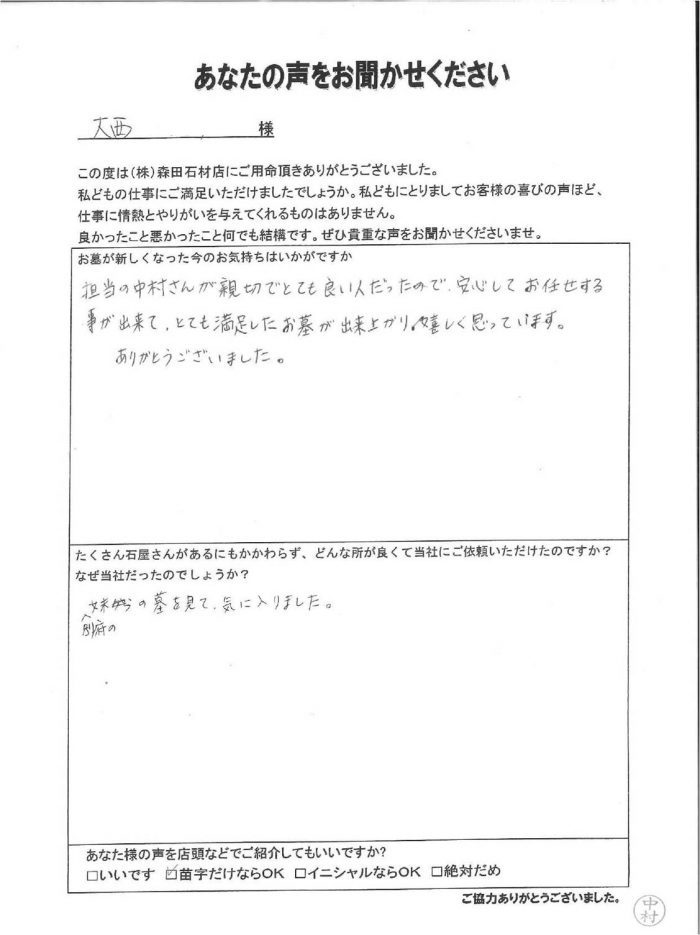 あなたの声をお聞かせください
大西 様
この度は(株)森田石材店にご用命頂きありがとうございました。
私どもの仕事にご満足いただけましたでしょうか。私どもにとりましてお客様の喜びの声ほど、
仕事に情熱とやりがいを与えてくれるものはありません。
良かったこと悪かったこと何でも結構です。ぜひ貴重な声をお聞かせくださいませ。
お墓が新しくなった今のお気持ちはいかがですか
担当の中村さんが親切でとても良い人だったので、安心してお任せする
事が出来て、とても満足したお墓が出来上がり、嬉しく思っています。
ありがとうございました。
たくさん石屋さんがあるにもかかわらず、どんな所が良くて当社にご依頼いただけたのですか?
なぜ当社だったのでしょうか?
の墓を見て、気に入りました。
別府の
あなた様の声を店頭などでご紹介してもいいですか?
□いいです ☑苗字だけならOK □イニシャルならOK □絶対だめ
ご協力ありがとうございました。
中村